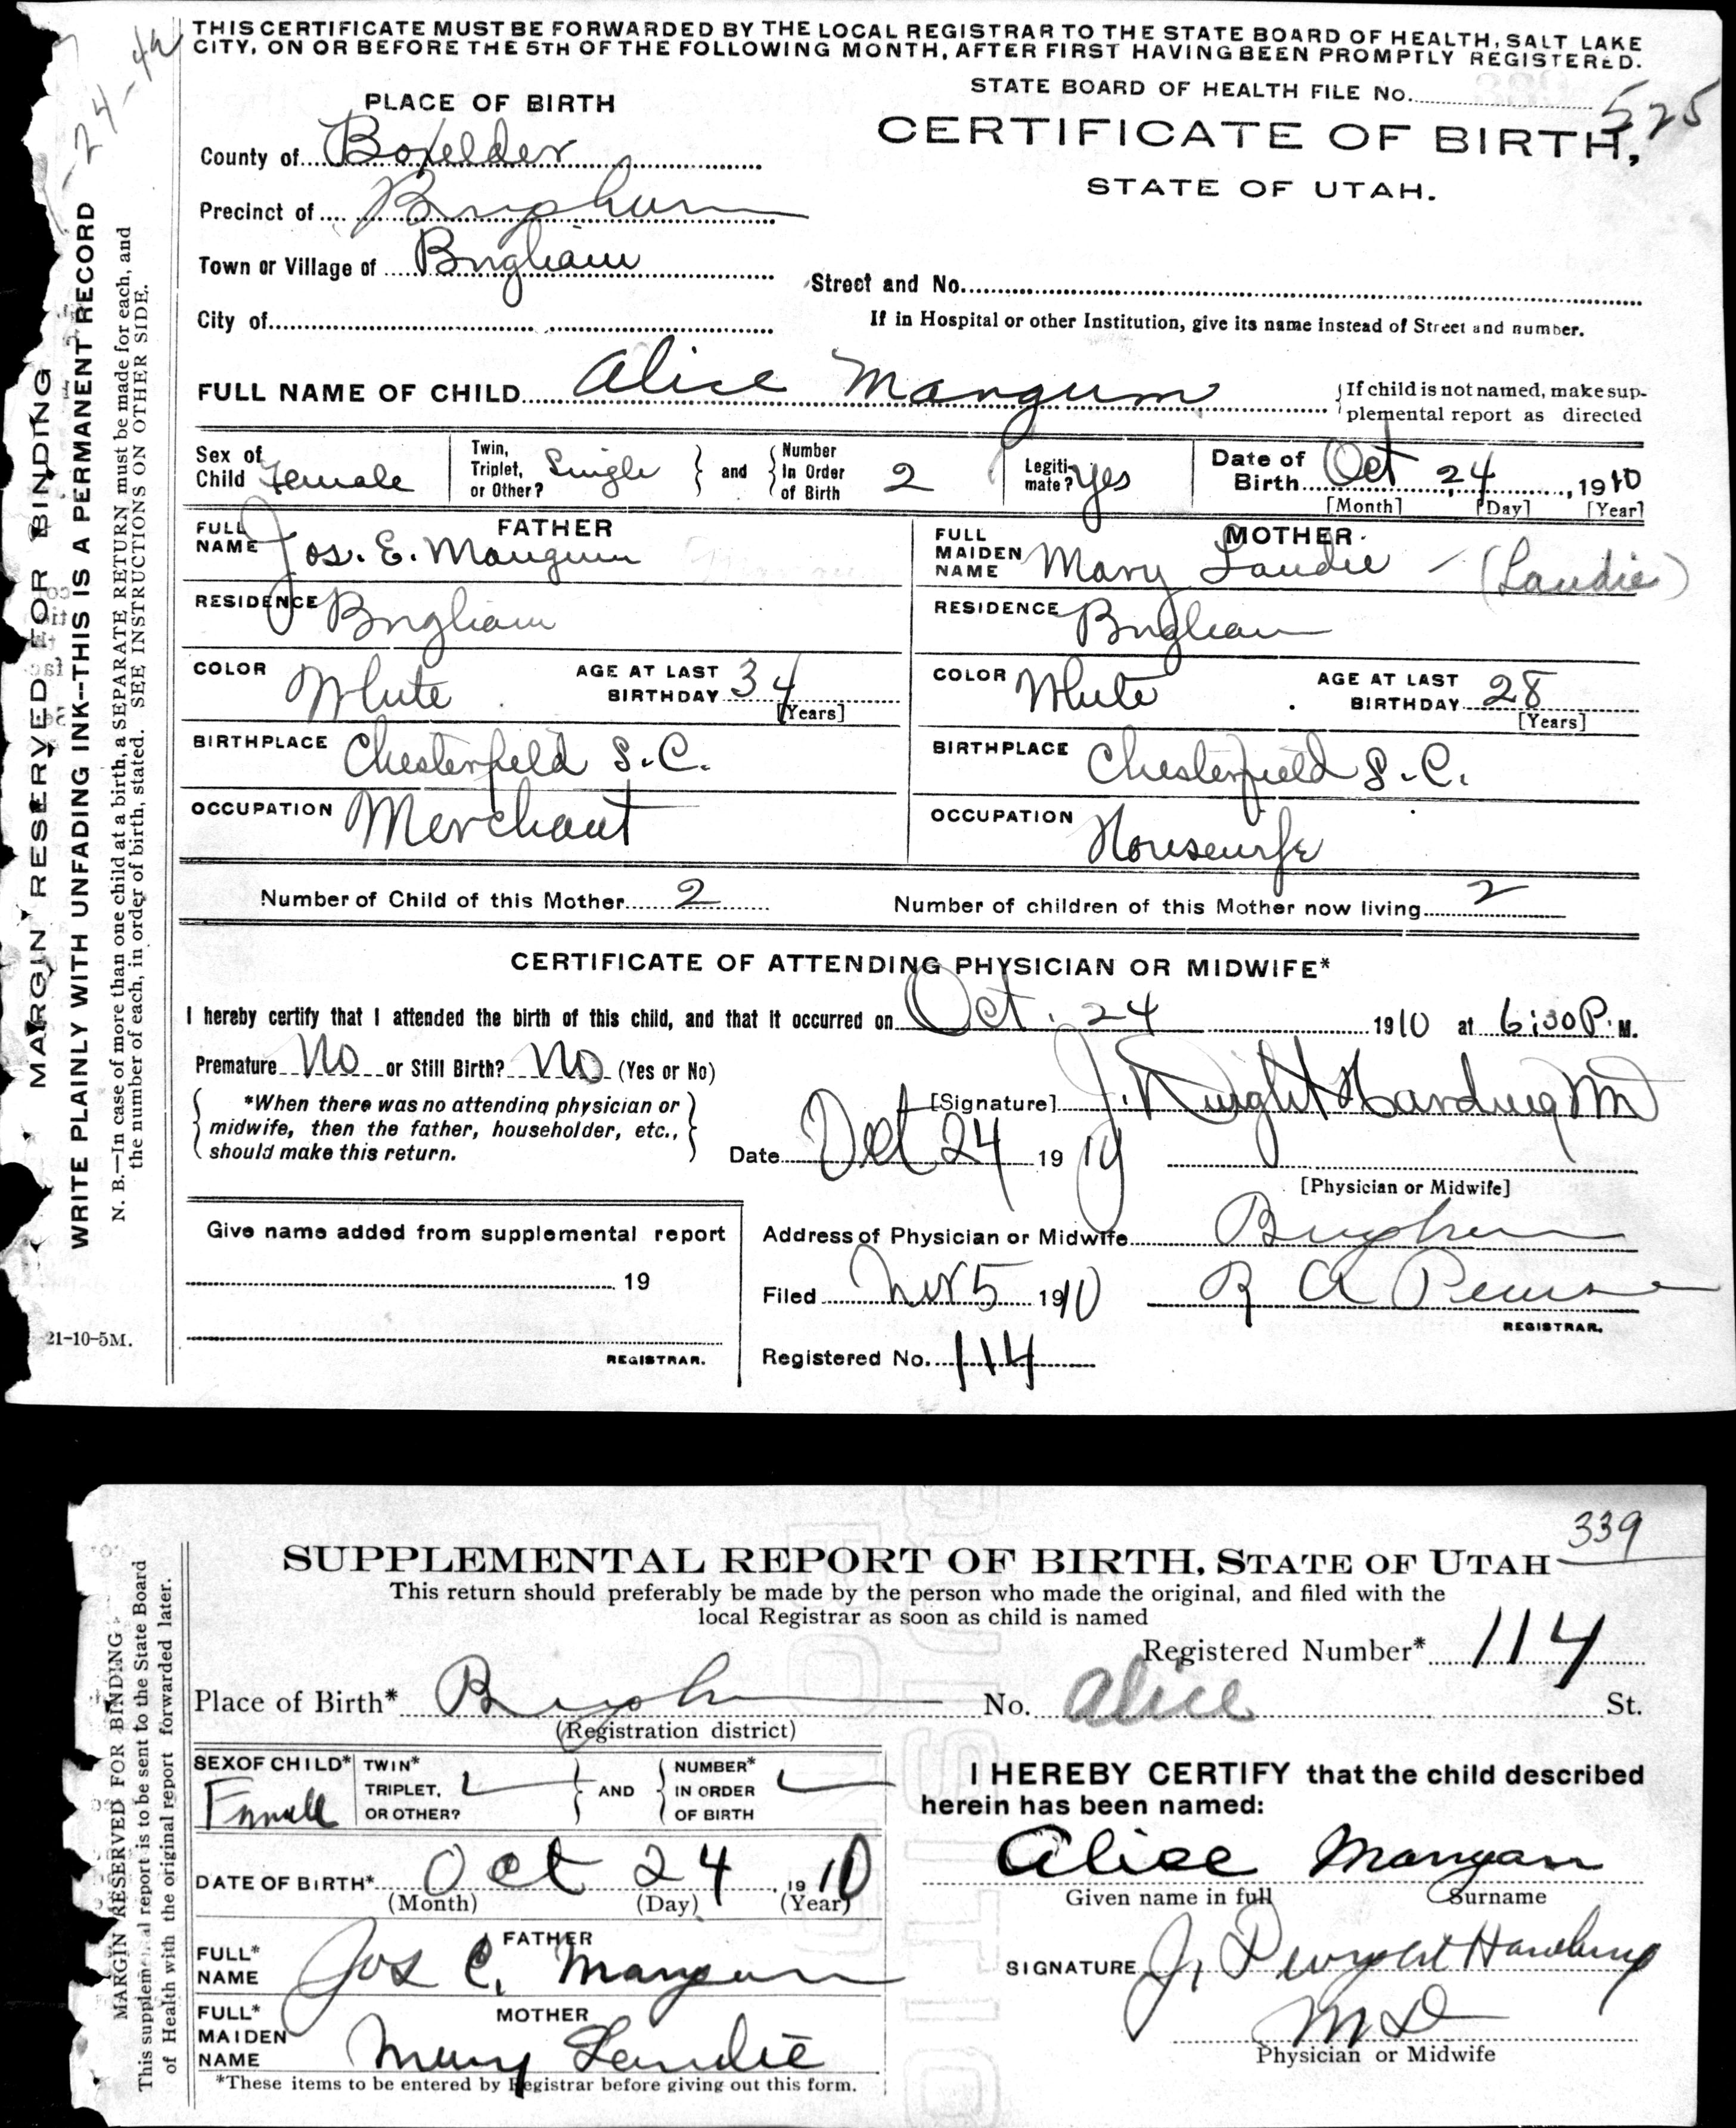 THIS CERTIFICATE MUST BE FORWARDED BY THE LOCAL REGISTRAR TO THE STATE BOARD OF HEALTH, SALT LAKE
CITY, ON OR BEFORE THE 5TH OF THE FOLLOWING MONTH, AFTER FIRST HAVING BEEN PROMPTLY REGISTERED.
STATE BOARD OF HEALTH FILE No. 525
CERTIFICATE OF BIRTH,
STATE OF UTAH.
PLACE OF BIRTH
County of Boxelder
Precinct of Brigham
Town or Village of Brigham
Street and No.
City of
If in Hospital or other Institution, give its name instead of Street and number.
FULL NAME OF CHILD Alice Mangum
If child is not named, make sup-
plemental report as directed
Sex of Child Female
Twin, Triplet, or Other? Single and Number In Order of Birth 2
Legiti-mate? Yes
Date of Birth Oct 24, 1910
[Month] [Day] [Year]
FATHER
FULL NAME Jos. E. Mangum
MOTHER
FULL MAIDEN NAME Mary Laudie - (Laudie)
RESIDENCE Brigham
RESIDENCE Brigham
COLOR White AGE AT LAST BIRTHDAY 34 [Years]
COLOR White AGE AT LAST BIRTHDAY 28 [Years]
BIRTHPLACE Chesterfield S.C.
BIRTHPLACE Chesterfield S.C.
OCCUPATION Merchant
OCCUPATION Housewife
Number of Child of this Mother 2 Number of children of this Mother now living 2
CERTIFICATE OF ATTENDING PHYSICIAN OR MIDWIFE*
I hereby certify that I attended the birth of this child, and that it occurred on Oct. 24 1910 at 6:30 P. M.
Premature No or Still Birth? No (Yes or No)
*When there was no attending physician or
midwife, then the father, householder, etc.,
should make this return.
[Signature] J. Dwight Harding MD
Date Oct 24 1910
[Physician or Midwife]
Give name added from supplemental report
19
REGISTRAR.
Address of Physician or Midwife Brigham
Filed Nov 5 1910 R A
REGISTRAR.
Registered No. 114
MARGIN RESERVED FOR BINDING
WRITE PLAINLY WITH UNFADING INK--THIS IS A PERMANENT RECORD
N. B.—In case of more than one child at a birth, a SEPARATE RETURN must be made for each, and
the number of each, in order of birth, stated. SEE INSTRUCTIONS ON OTHER SIDE.
21-10-5M.
339
SUPPLEMENTAL REPORT OF BIRTH, STATE OF UTAH
This return should preferably be made by the person who made the original, and filed with the
local Registrar as soon as child is named
Registered Number* 114
Place of Birth* Brigham No. Alice St.
(Registration district)
SEX OF CHILD* Female
TWIN* TRIPLET, OR OTHER? AND NUMBER* IN ORDER OF BIRTH
I HEREBY CERTIFY that the child described
herein has been named:
Alice Mangum
Given name in full Surname
DATE OF BIRTH* Oct 24, 1910
(Month) (Day) (Year)
FATHER
FULL* NAME Jos E. Mangum
SIGNATURE J. Dwight Harding
MD
Physician or Midwife
MOTHER
FULL* MAIDEN NAME Mary Laudie
*These items to be entered by Registrar before giving out this form.
MARGIN RESERVED FOR BINDING
This supplemental report is to be sent to the State Board
of Health with the original report forwarded later.